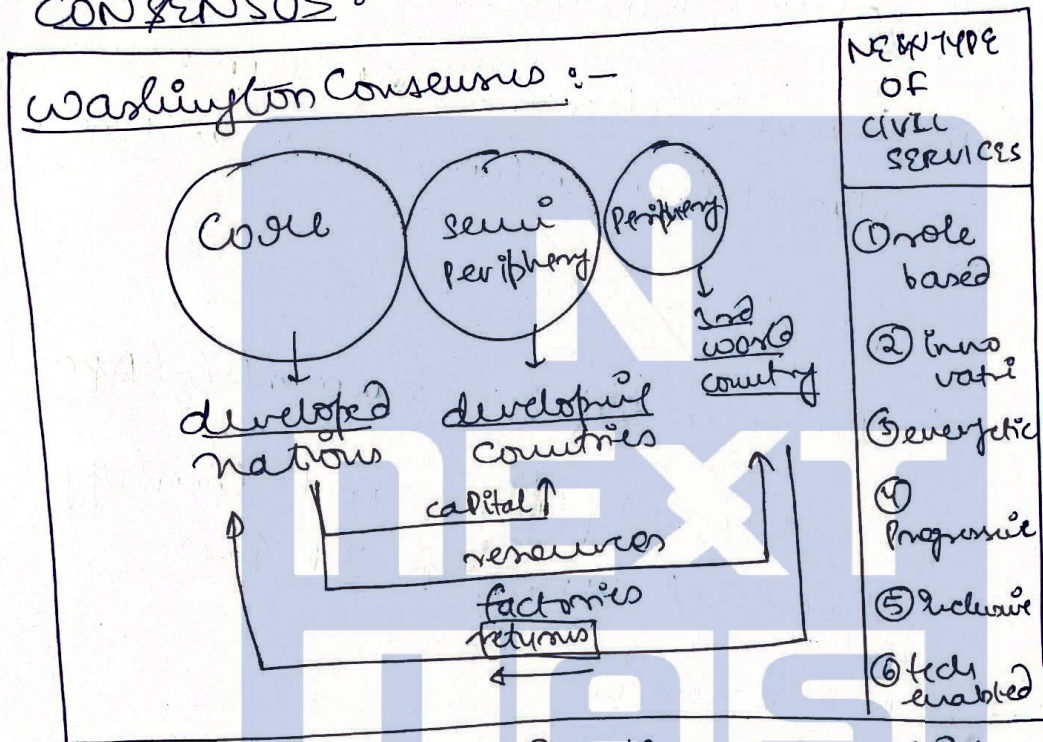 CONSENSUS :
Washington Consensus :-
Core
semi
periphery
Periphery
3rd
world
country
developed
nations
developing
countries
capital
resources
factories
returns
NEW TYPE
OF
CIVIL
SERVICES
① role
based
② inno
vati
③ energetic
④
Progressive
⑤ Inclusive
⑥ tech
enabled
N
NEXT
IAS